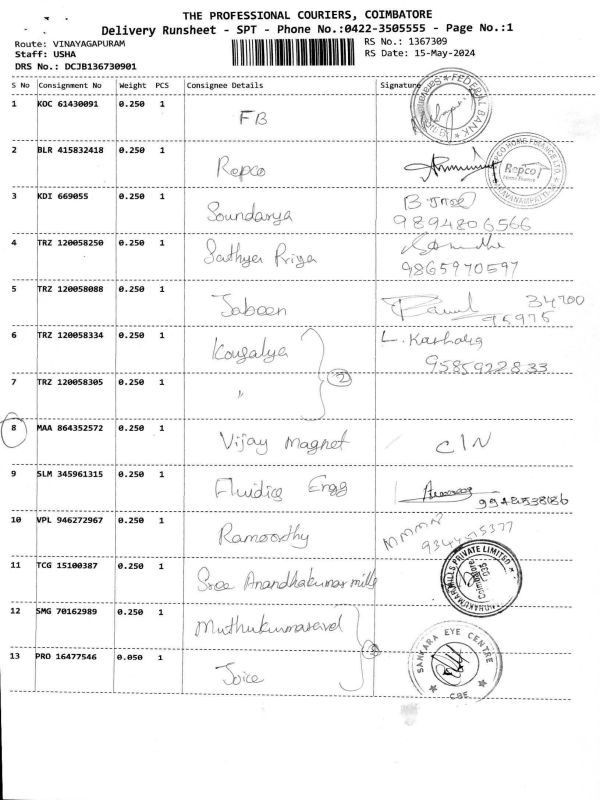 THE PROFESSIONAL COURIERS, COIMBATORE
Delivery Runsheet - SPT - Phone No.:0422-3505555 - Page No.:1
Route: VINAYAGAPURAM RS No.: 1367309
Staff: USHA RS Date: 15-May-2024
DRS No.: DCJB136730901
S No Consignment No Weight PCS Consignee Details Signature
1 KOC 61430091 0.250 1 FB
FEDERAL BANK
2 BLR 415832418 0.250 1 Repco
REPCO HOME FINANCE LTD.
Repco
3 KDI 669055 0.250 1 Soundarya
9894806566
4 TRZ 120058250 0.250 1 Sathya Priya
9865970597
5 TRZ 120058088 0.250 1 Jabeen 34700
95975
6 TRZ 120058334 0.250 1 Kousalya
9585922833
7 TRZ 120058305 0.250 1 " 2
8 MAA 864352572 0.250 1 Vijay Magnet C/N
9 SLM 345961315 0.250 1 Fluidics Engg
10 VPL 946272967 0.250 1 Ramoorthy
11 TCG 15100387 0.250 1 Sree Anandhakumar mills
MILLS PRIVATE LIMITED
Coimbatore
035
12 SMG 70162989 0.250 1 Muthukumarasavel
SANKARA EYE CENTRE
CBE
13 PRO 16477546 0.050 1 Joice